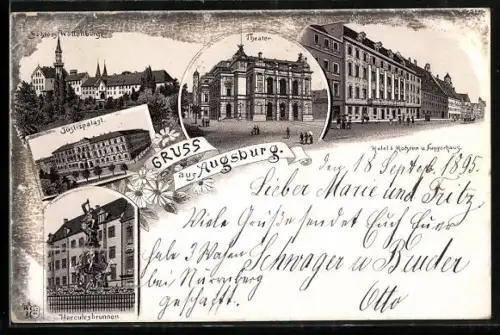 Schloss Wellenburg.
Theater.
Hotel 3 Mohren u. Fuggerhaus.
Justizpalast.
GRUSS
aus Augsburg.
Herculesbrunnen
den 18 Septbr. 1895.
Lieber Marie und Fritz
Viele Grüße sendet Euch Euer
Schwager u Bruder
habe 3 Wasen
bei Nürnberg
geschafft.
Otto